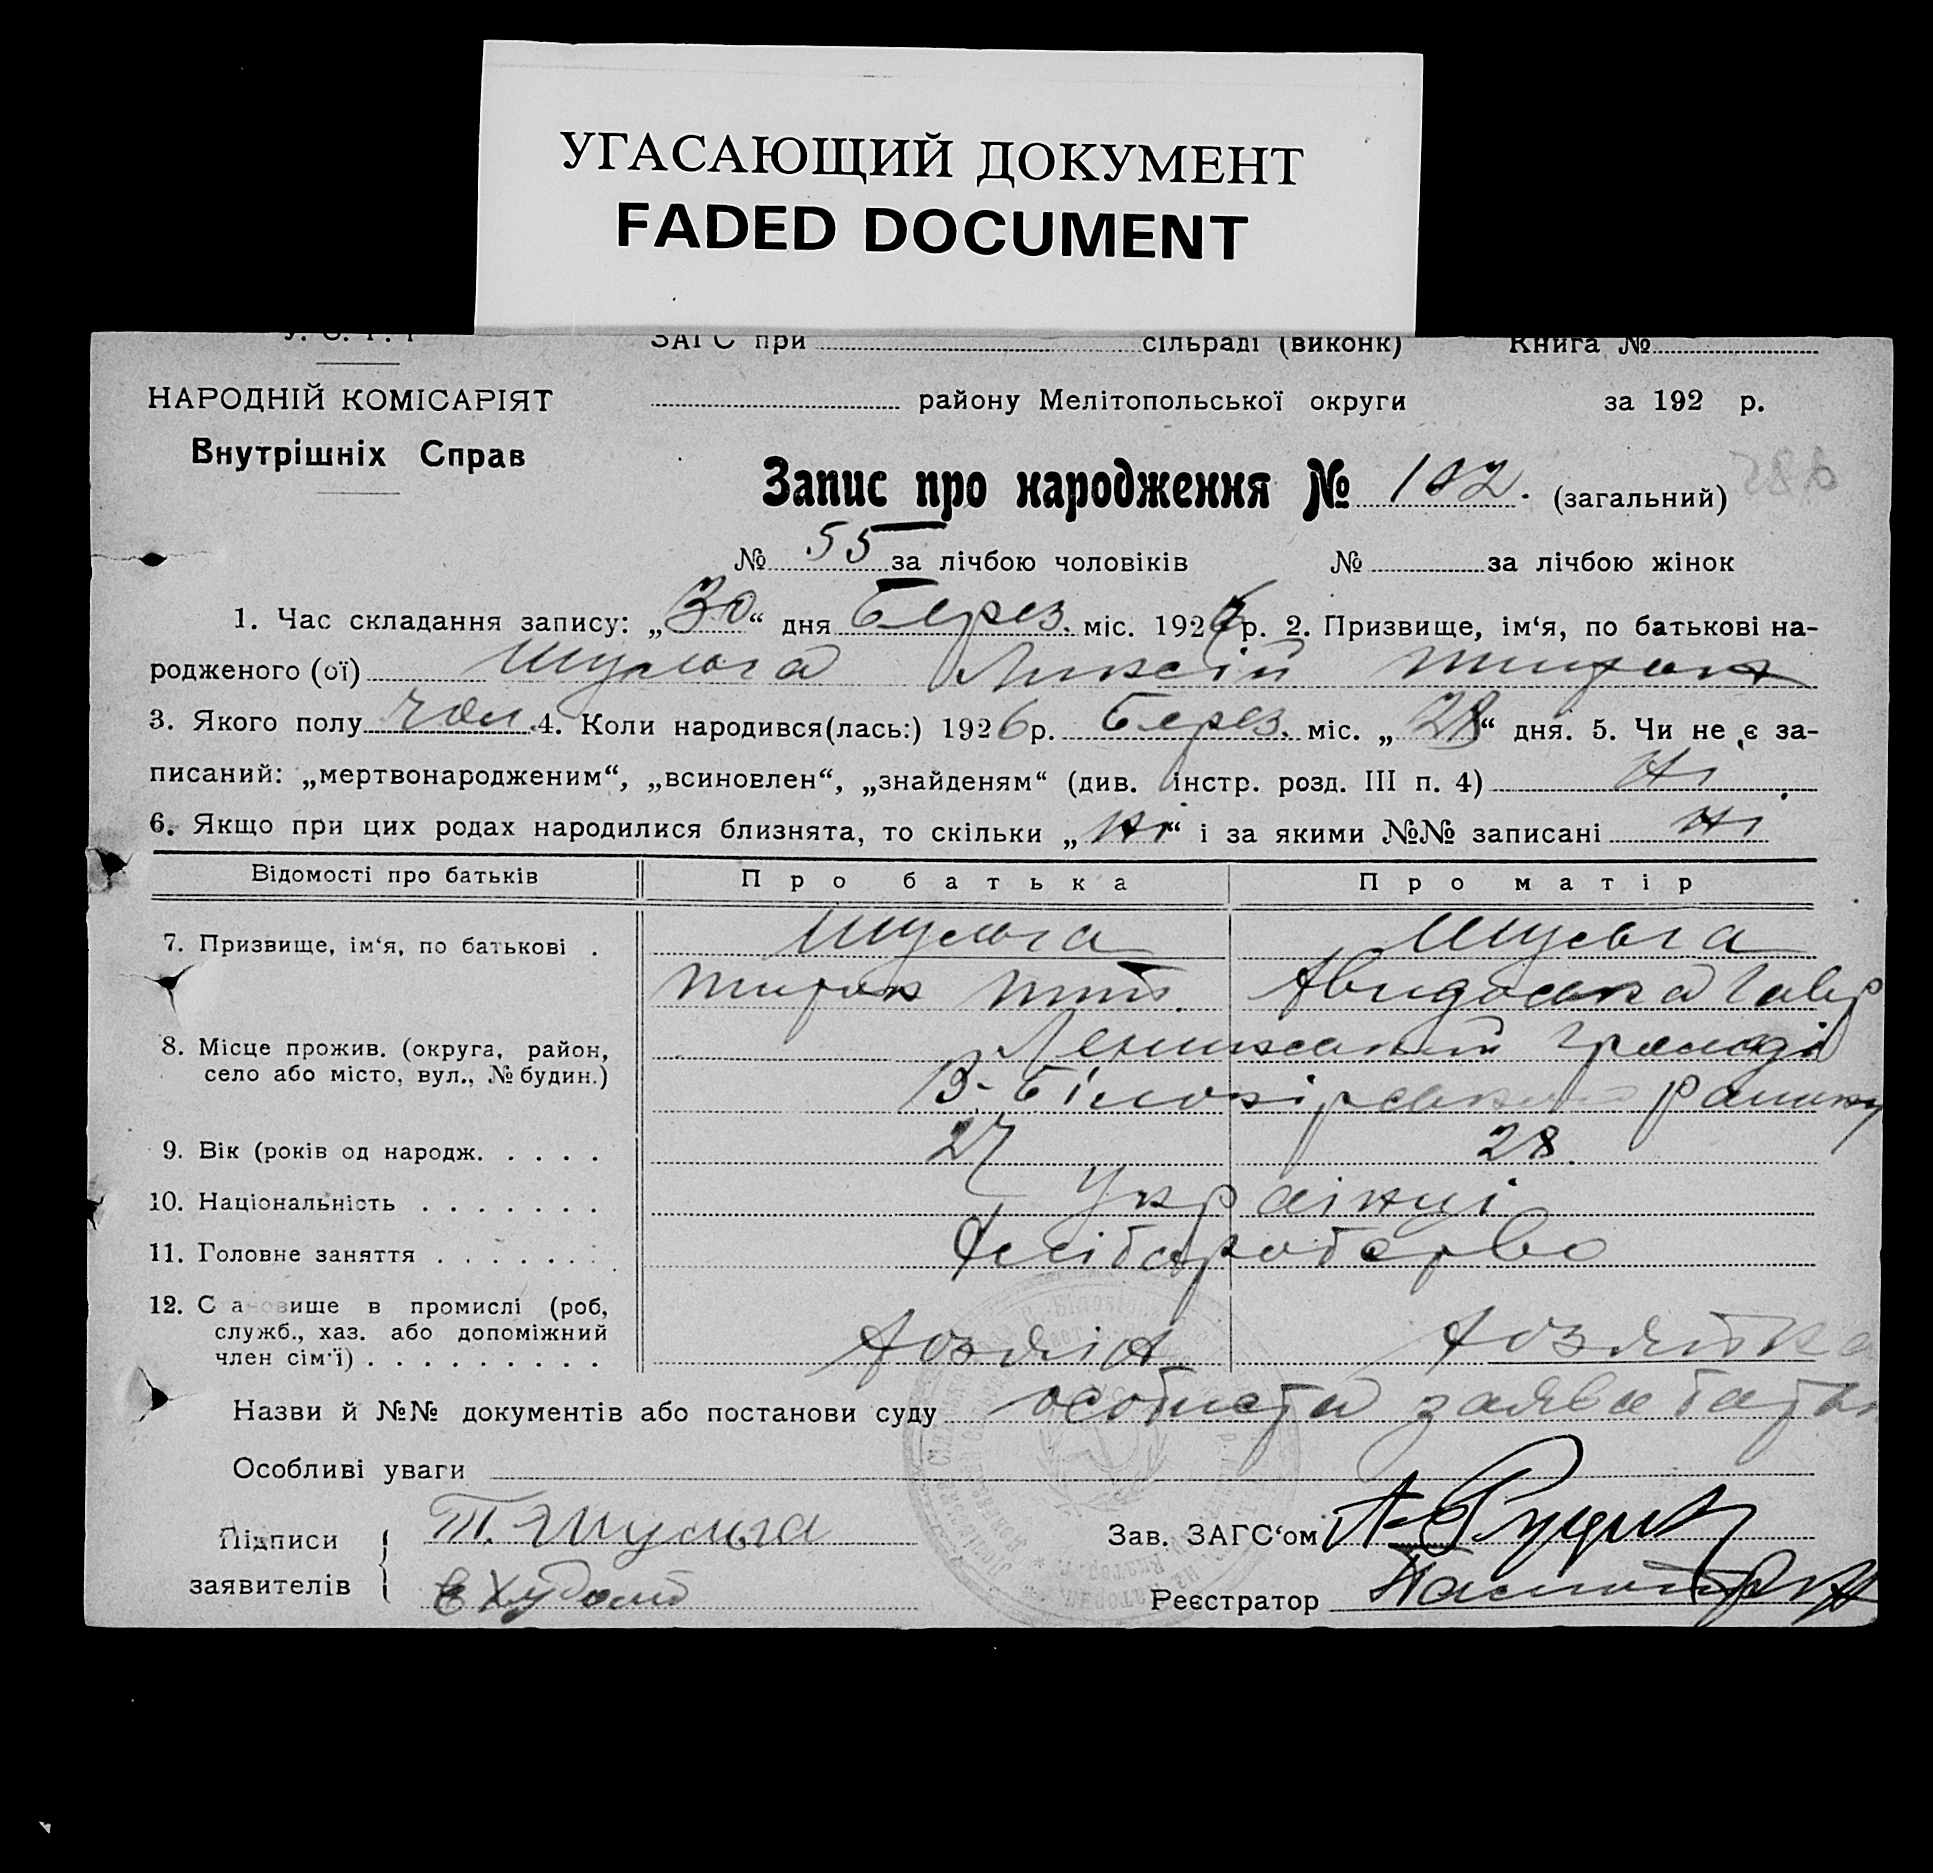 УГАСАЮЩИЙ ДОКУМЕНТ
FADED DOCUMENT
У. С. Р. Р
ЗАГС при сільраді (виконк) Книга №
НАРОДНІЙ КОМІСАРІЯТ
району Мелітопольської округи за 192 р.
Внутрішніх Справ
Запис про народження № 102. (загальний)
№ 55 за лічбою чоловіків № за лічбою жінок
1. Час складання запису: „30“ дня Берез. міс. 1926 р. 2. Призвище, ім‘я, по батькові на-
родженого (ої) Шульга
3. Якого полу чол. 4. Коли народився(лась:) 1926 р. Берез. міс. „28“ дня. 5. Чи не є за-
писаний: „мертвонародженим“, „всиновлен“, „знайденям“ (див. інстр. розд. III п. 4) Ні
6. Якщо при цих родах народилися близнята, то скільки „Ні“ і за якими №№ записані Ні
Відомості про батьків Про батька Про матір
7. Призвище, ім‘я, по батькові . Шульга Шульга
8. Місце прожив. (округа, район,
село або місто, вул., № будин.)
В-Білозірського району
9. Вік (років од народж. . . . . 27 28.
10. Національність . . . . . . . Українці
11. Головне заняття . . . . . . . Хліборобство
12. С а овище в промислі (роб,
служб., хаз. або допоміжний
член сім‘ї) . . . . . . . . . Хозяїн Хозяйка
Назви й №№ документів або постанови суду особиста заява батьк
Особливі уваги
Підписи заявителів Т. Шульга
Зав. ЗАГС‘ом
Реєстратор